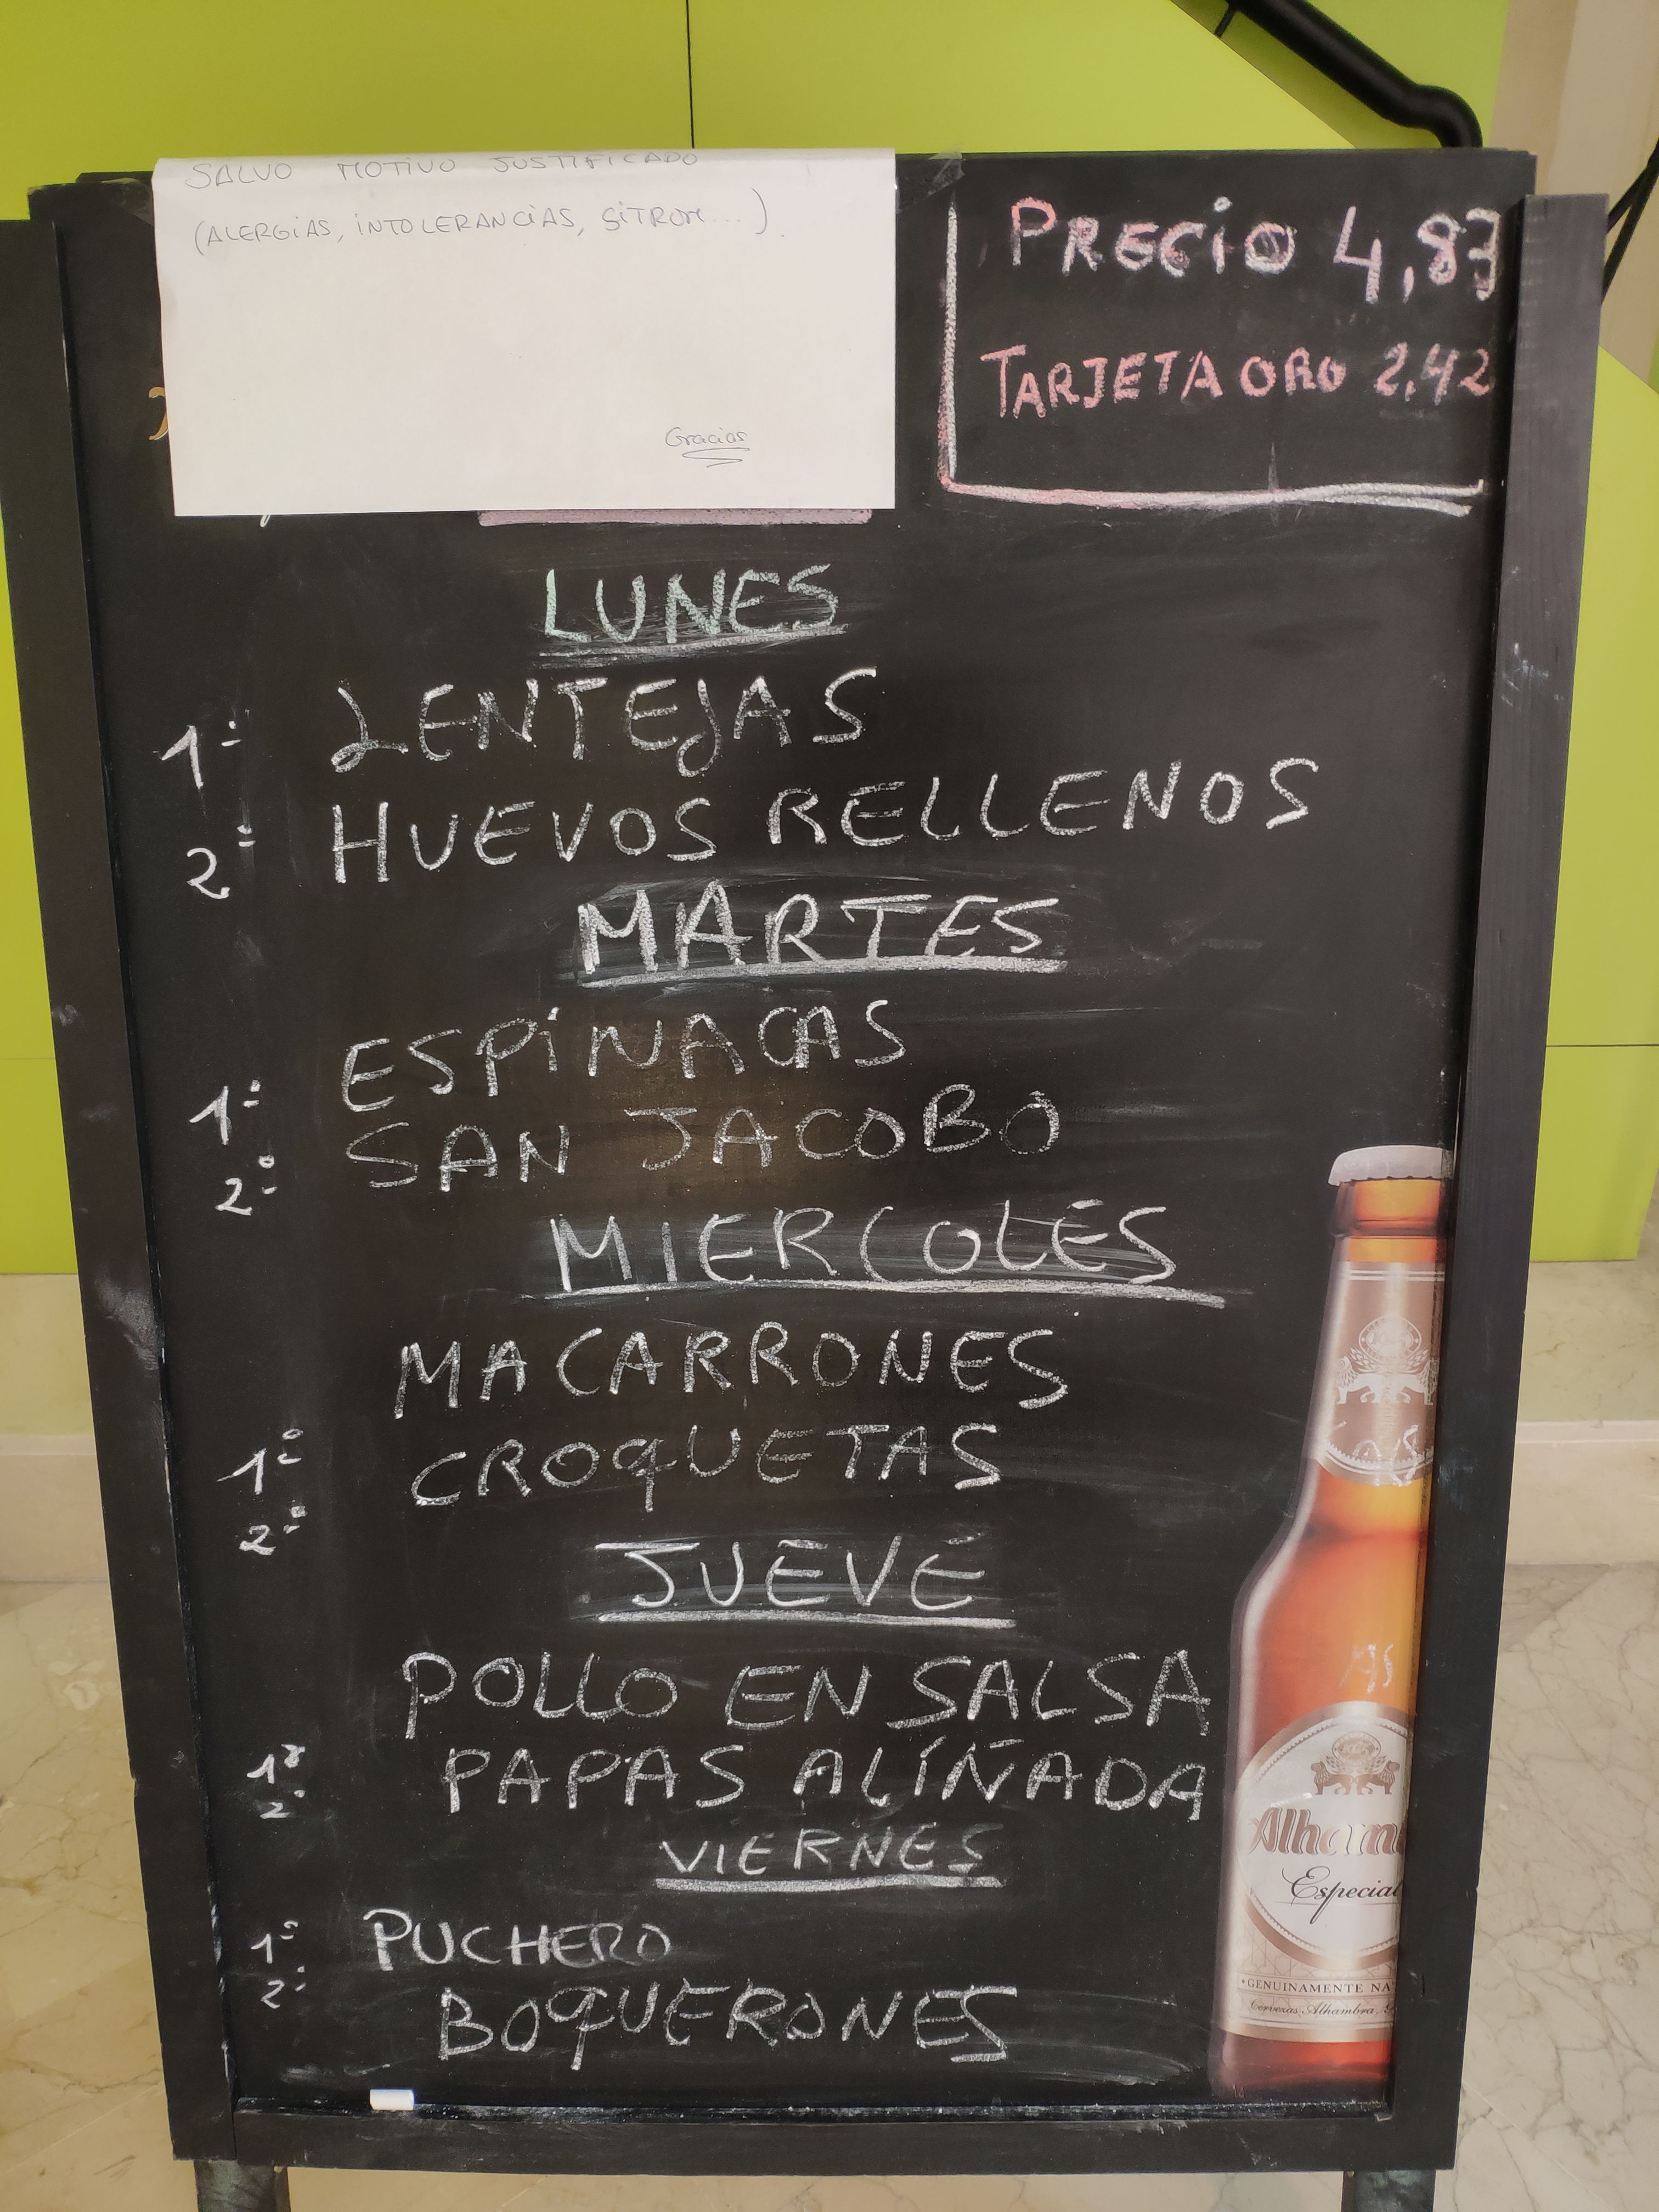 SALVO MOTIVO JUSTIFICADO
(ALERGIAS, INTOLERANCIAS, SITROM...).
Gracias
PRECIO 4,83
TARJETA ORO 2,42
LUNES
1º LENTEJAS
2º HUEVOS RELLENOS
MARTES
1º ESPINACAS
2º SAN JACOBO
MIERCOLES
1º MACARRONES
2º CROQUETAS
JUEVE
1º POLLO EN SALSA
2º PAPAS ALIÑADA
VIERNES
1º PUCHERO
2º BOQUERONES
Alham
Especial
GENUINAMENTE NA
Cervezas Alhambra,